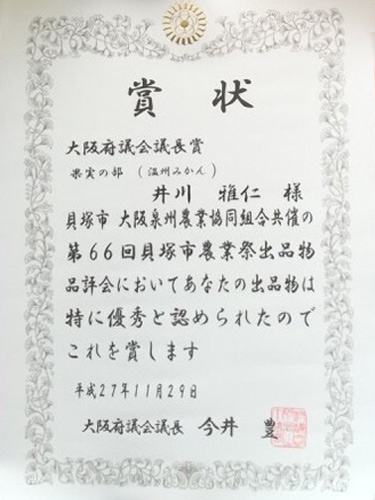 賞状
大阪府議会議長賞
果実の部 (温州みかん)
井川 雅仁 様
貝塚市 大阪泉州農業協同組合共催の
第66回貝塚市農業祭出品物
品評会においてあなたの出品物は
特に優秀と認められたので
これを賞します
平成27年11月29日
大阪府議会議長 今井 豊